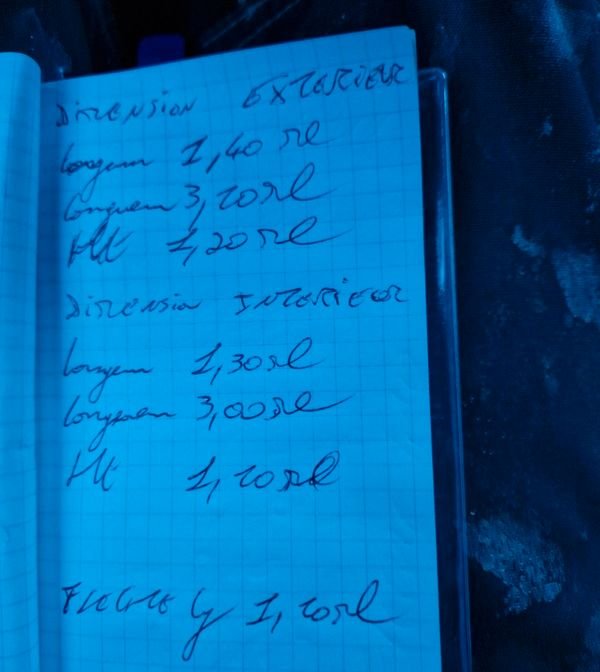 DIMENSION EXTERIEUR
largeur 1,40 ml
longueur 3,10 ml
Ht 1,20 ml
DIMENSION INTERIEUR
largeur 1,30 ml
longueur 3,00 ml
Ht 1,10 ml
FLECHE 1,10 ml